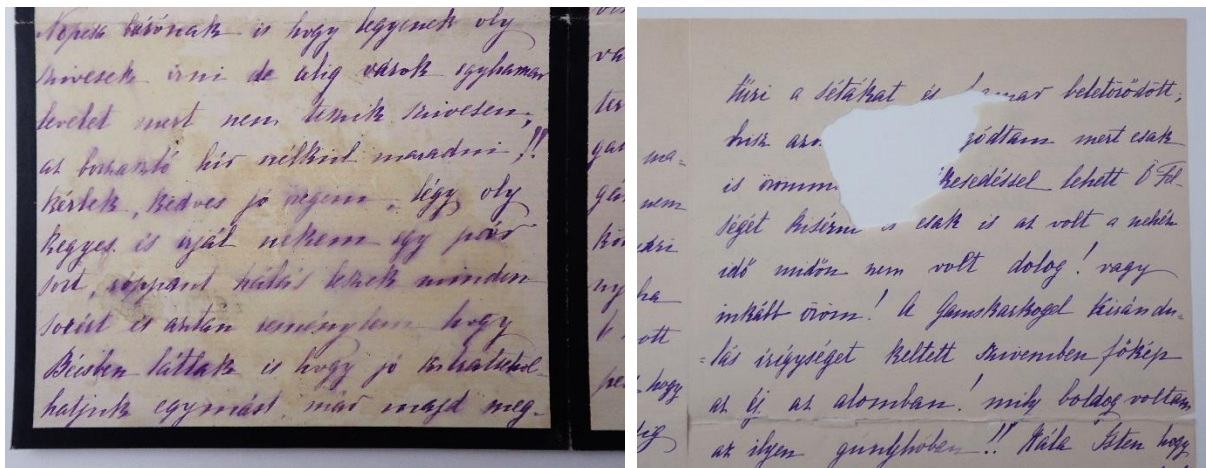 Nopcsa bárónak is hogy legyenek oly
szivesek irni de alig várok egyhamar
levelet mert nem teszik szivesen,
az borzasztó hír nélkül maradni!!
kérlek, kedves jó regem, légy oly
kegyes is irjál nekem egy pár
sort, roppant hálás leszek minden
soért is aztán reménylem hogy
Bécsben láttak is hogy jó
hatjuk egymást, már majd meg-
tűri a sétákat és hamar beletörődött,
hisz zódtam mert csak
is öröm kesedéssel lehett Ő Fel-
ségét kisérni s csak is az volt a nehéz
idő midőn nem volt dolog! vagy
inkább öröm! A Gamskarkogel kirándu-
=lás irigységet keltett szivemben főkép
az éj az alomban! mily boldog voltam
az ilyen gunyhóban!! Hála Isten hogy
ma=
nem
ha
ott
hogy